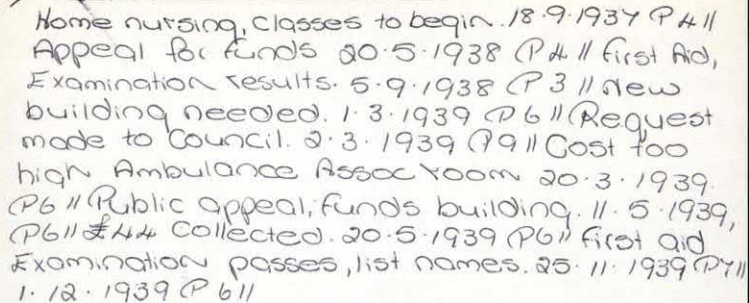 Home nursing, classes to begin. 18.9.1937 (P4//
Appeal for funds 20.5.1938 (P4// First Aid,
Examination results. 5.9.1938 (P3// New
building needed. 1.3.1939 (P6// Request
made to Council. 2.3.1939 (P9// Cost too
high Ambulance Assoc room 20.3.1939.
(P6// Public appeal, funds building. 11.5.1939,
(P6// £44 Collected. 20.5.1939 (P6// First aid
Examination passes, list names. 25.11.1939 (P7//
1.12.1939 (P6//